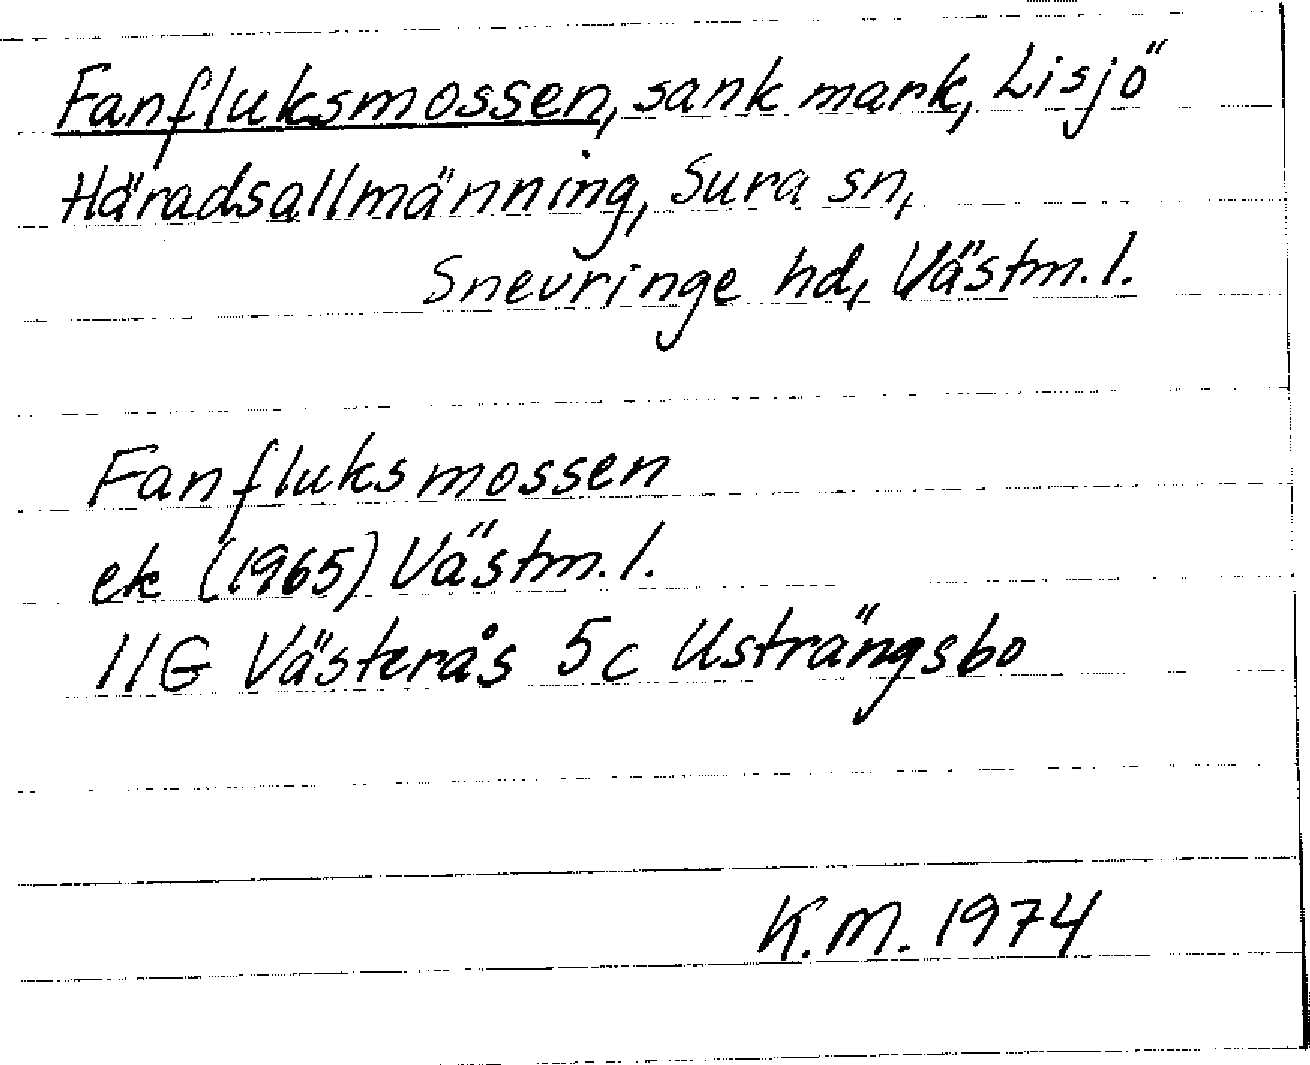 Fanfluksmossen, sank mark, Lisjö
Häradsallmänning, Sura sn,
Snevringe hd, Västm. l.
Fanfluksmossen
ek (1965) Västm. l.
11G Västerås 5c Usträngsbo
K.M. 1974